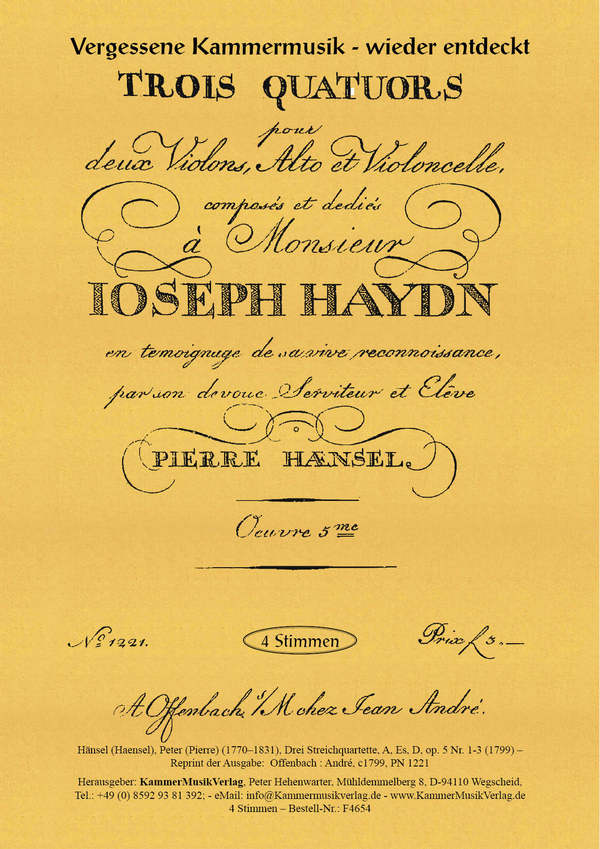 Vergessene Kammermusik - wieder entdeckt
TROIS QUATUORS
pour
deux Violons, Alto et Violoncelle,
composés et dediés
à Monsieur
IOSEPH HAYDN
en temoignage de sa vive reconnoissance,
par son devoue Serviteur et Elève
PIERRE HÆNSEL.
Oeuvre 5me
No 1221.
4 Stimmen
Prix f 3.—
A Offenbach s/M chez Jean André.
Hänsel (Haensel), Peter (Pierre) (1770–1831), Drei Streichquartette, A, Es, D, op. 5 Nr. 1-3 (1799) –
Reprint der Ausgabe: Offenbach : André, c1799, PN 1221
Herausgeber: KammerMusikVerlag, Peter Hehenwarter, Mühldemmelberg 8, D-94110 Wegscheid,
Tel.: +49 (0) 8592 93 81 392; - eMail: info@Kammermusikverlag.de - www.KammerMusikVerlag.de
4 Stimmen – Bestell-Nr.: F4654